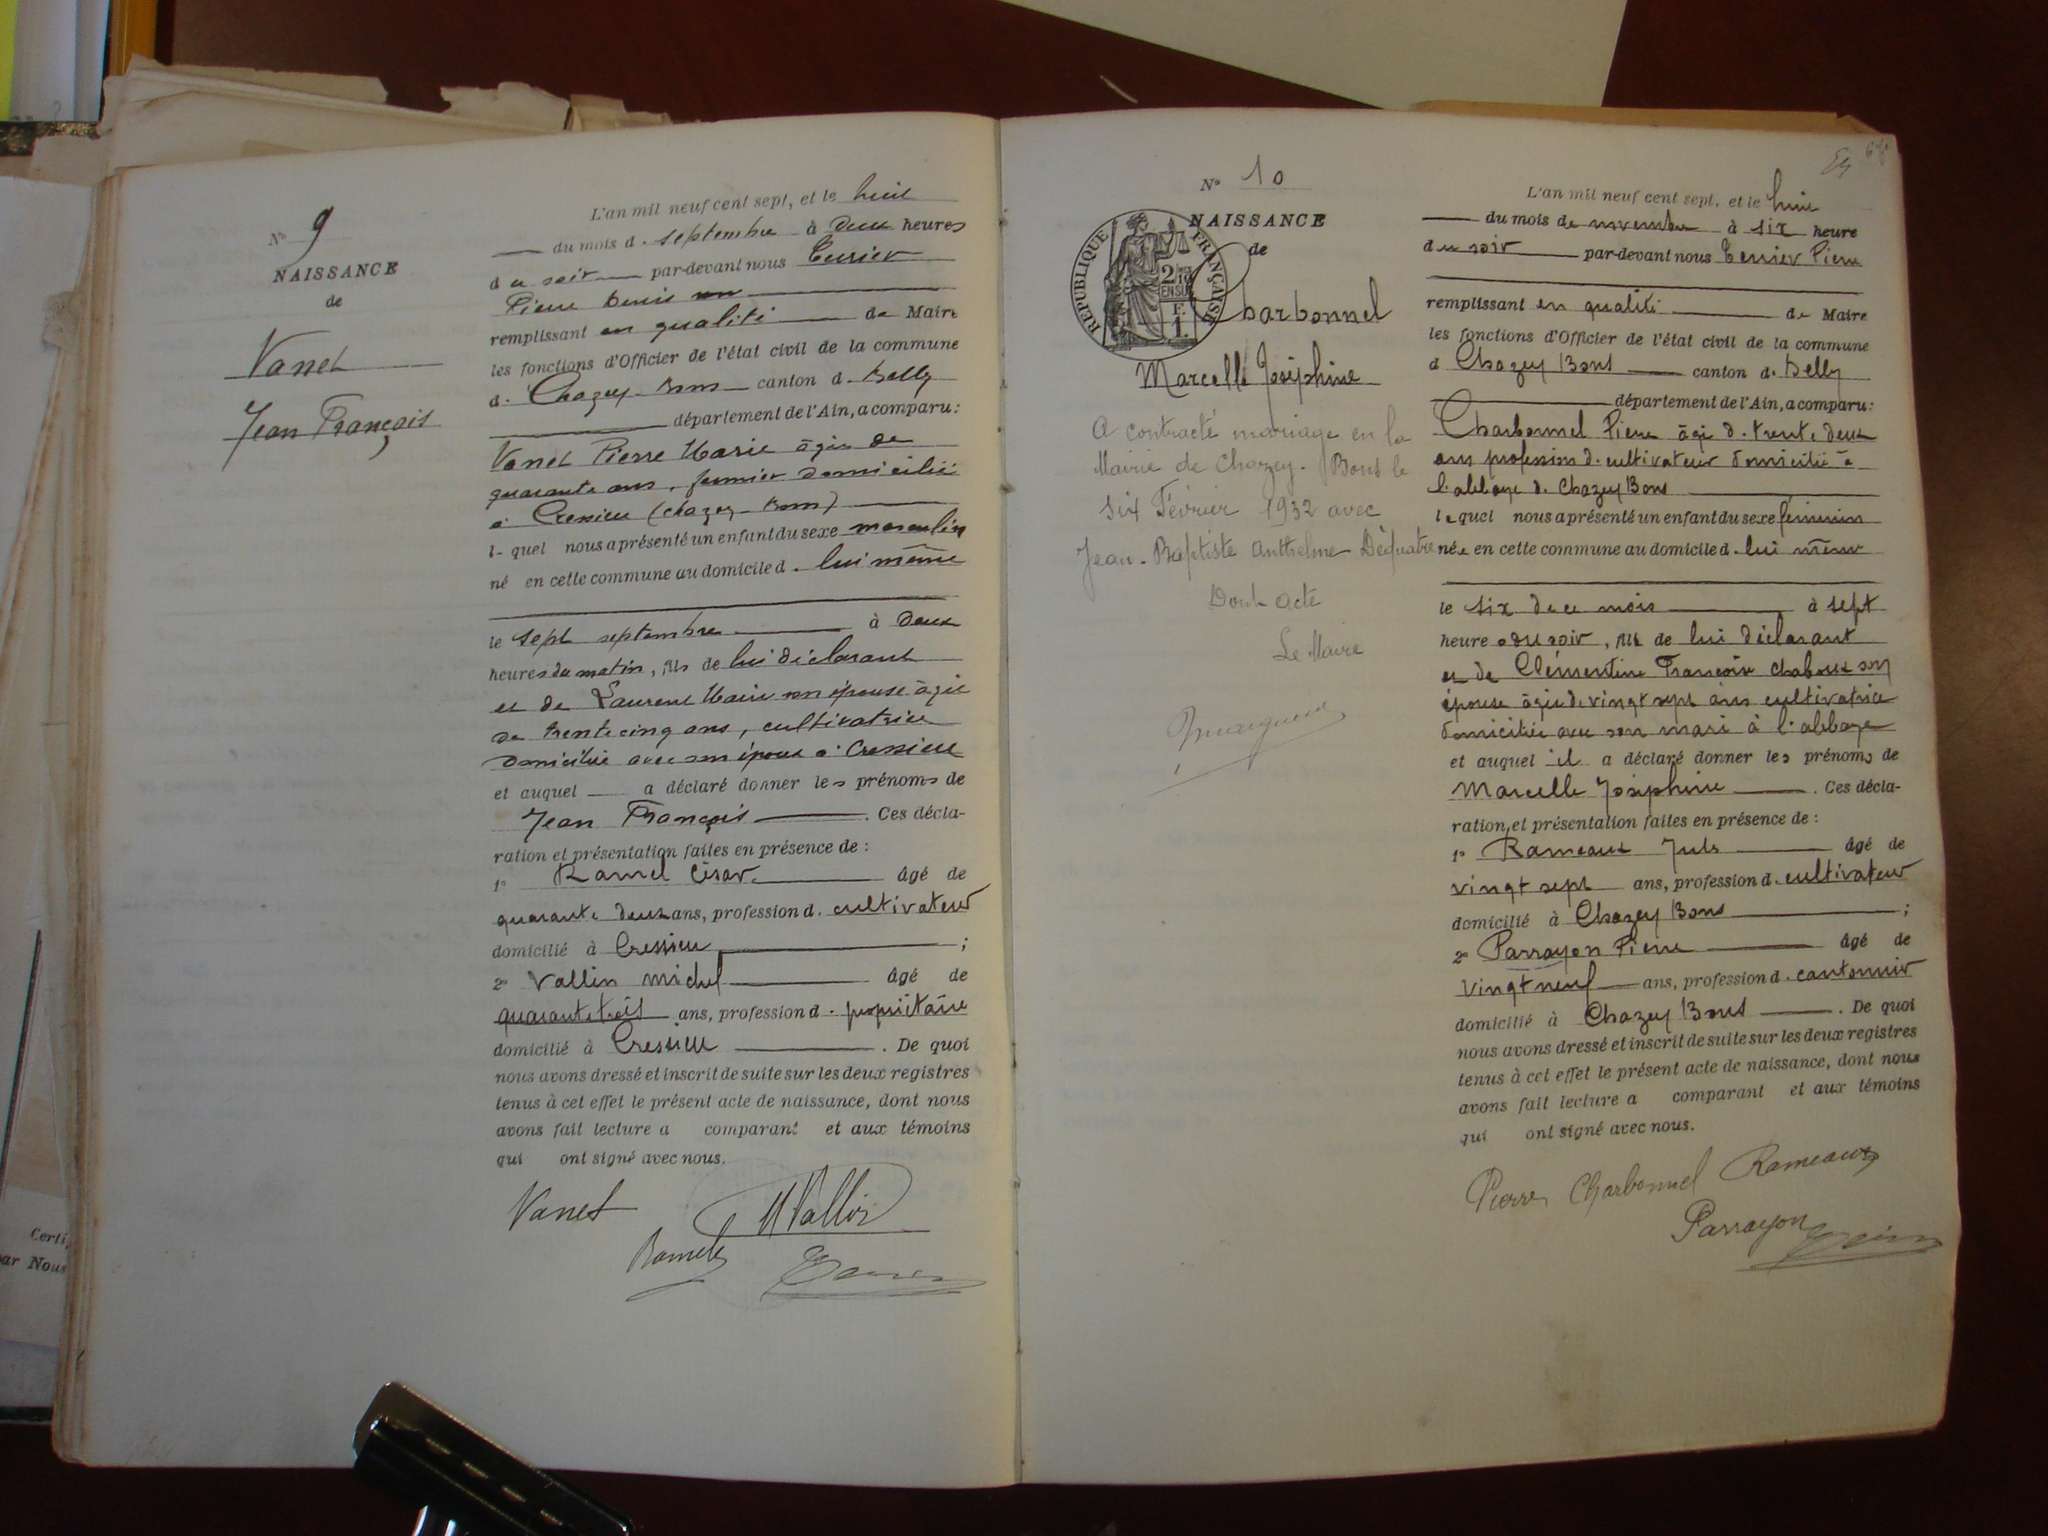 N° 9
NAISSANCE
de
Vanel
Jean François
L'an mil neuf cent sept, et le huit
du mois d. septembre à deux heures
du soir par-devant nous Terrier
Pierre Denis
remplissant en qualité de Maire
les fonctions d'Officier de l'état civil de la commune
d. Chazey-Bons canton d. Belley
département de l'Ain, a comparu:
Vanel Pierre Marie âgé de
quarante ans, fermier domicilié
à Cressieu (Chazey-Bons)
lequel nous a présenté un enfant du sexe masculin
né en cette commune au domicile d. lui même
le sept septembre à deux
heures du matin, fils de lui déclarant
et de Laurent Marie son épouse âgée
de trente cinq ans, cultivatrice
domiciliée avec son époux à Cressieu
et auquel a déclaré donner les prénoms de
Jean François. Ces décla-
ration et présentation faites en présence de :
1° Ramel César âgé de
quarante deux ans, profession d. cultivateur
domicilié à Cressieu ;
2° Vallin Michel âgé de
quarante trois ans, profession d. propriétaire
domicilié à Cressieu. De quoi
nous avons dressé et inscrit de suite sur les deux registres
tenus à cet effet le présent acte de naissance, dont nous
avons fait lecture a comparant et aux témoins
qui ont signé avec nous.
Vanel M Vallin
Ramel Terrier
Certi
par Nous
54
N° 10
NAISSANCE
de
RÉPUBLIQUE FRANÇAISE
2/10 EN SUS
1 F.
Charbonnel
Marcelle Joséphine
A contracté mariage en la
Mairie de Chazey-Bons le
six Février 1932 avec
Jean-Baptiste Anthelme
Dont acte
Le Maire
L'an mil neuf cent sept, et le huit
du mois de novembre à six heure
du soir par-devant nous Terrier Pierre
remplissant en qualité de Maire
les fonctions d'Officier de l'état civil de la commune
d Chazey Bons canton d. Belley
département de l'Ain, a comparu:
Charbonnel Pierre âgé d. trente deux
ans profession d. cultivateur domicilié à
l'abbaye d. Chazey Bons
lequel nous a présenté un enfant du sexe féminin
née en cette commune au domicile d. lui même
le six de ce mois à sept
heure du soir, fille de lui déclarant
et de Clémentine Françoise Chaboux son
épouse âgée de vingt sept ans cultivatrice
domiciliée avec son mari à l'abbaye
et auquel il a déclaré donner les prénoms de
Marcelle Joséphine. Ces décla-
ration et présentation faites en présence de :
1° Rameaux Jules âgé de
vingt sept ans, profession d. cultivateur
domicilié à Chazey Bons ;
2° Parrayon Pierre âgé de
vingt neuf ans, profession d. cantonnier
domicilié à Chazey Bons. De quoi
nous avons dressé et inscrit de suite sur les deux registres
tenus à cet effet le présent acte de naissance, dont nous
avons fait lecture a comparant et aux témoins
qui ont signé avec nous.
Pierre Charbonnel Rameaux
Parrayon Terrier